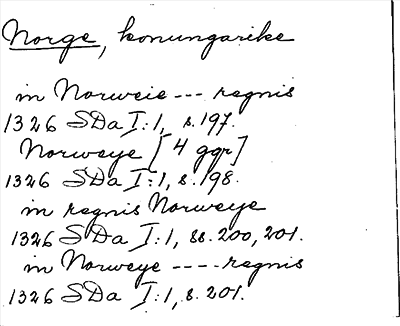 Norge, konungarike
in Norweie --- regnis
1326 SDa I:1, s.197.
Norweye [4 ggr]
1326 SDa I:1, s.198.
in regnis Norweye
1326 SDa I:1, ss.200,201.
in Norweye ---- regnis
1326 SDa I:1, s.201.